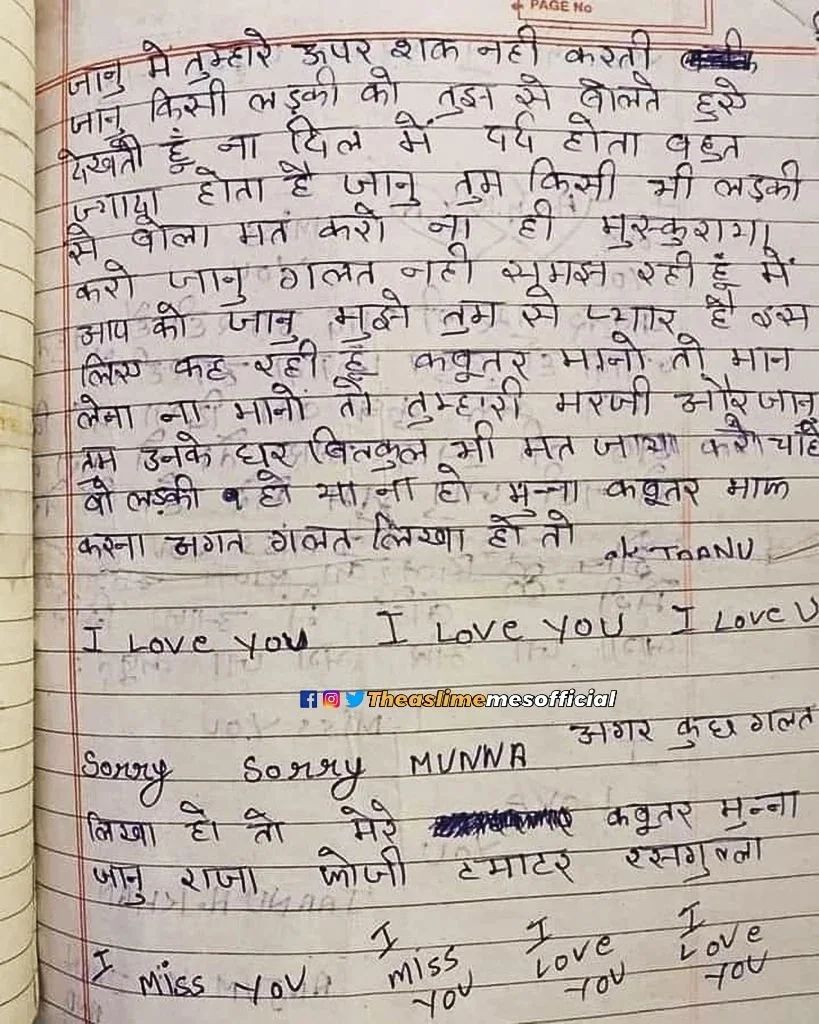 PAGE No
जानु मे तुम्हारे ऊपर शक नही करती
जानु किसी लड़की को तुझ से बोलते हुऐ
देखती हूं ना दिल में दर्द होता बहुत
ज्यादा होता है जानु तुम किसी भी लड़की
से बोला मत करो ना ही मुस्कुराया
करो जानु गलत नही समझ रही हूं में
आप को जानु मुझे तुम से प्यार है इस
लिए कह रही हूं कबूतर मानो तो मान
लेना ना मानो तो तुम्हारी मरजी और जानु
तुम उनके घर बिलकुल भी मत जाया करो चाहे
वो लड़की हो या ना हो मुन्ना कबूतर माफ
करना अगत गलत लिखा हो तो ok TAANU
I Love you I Love you I Love U
Theaslimememesofficial
Sorry Sorry MUNNA अगर कुछ गलत
लिखा हो तो मेरे कबूतर मुन्ना
जानु राजा फोजी टमाटर रसगुल्ला
I Miss you I Miss you I Love you I Love you